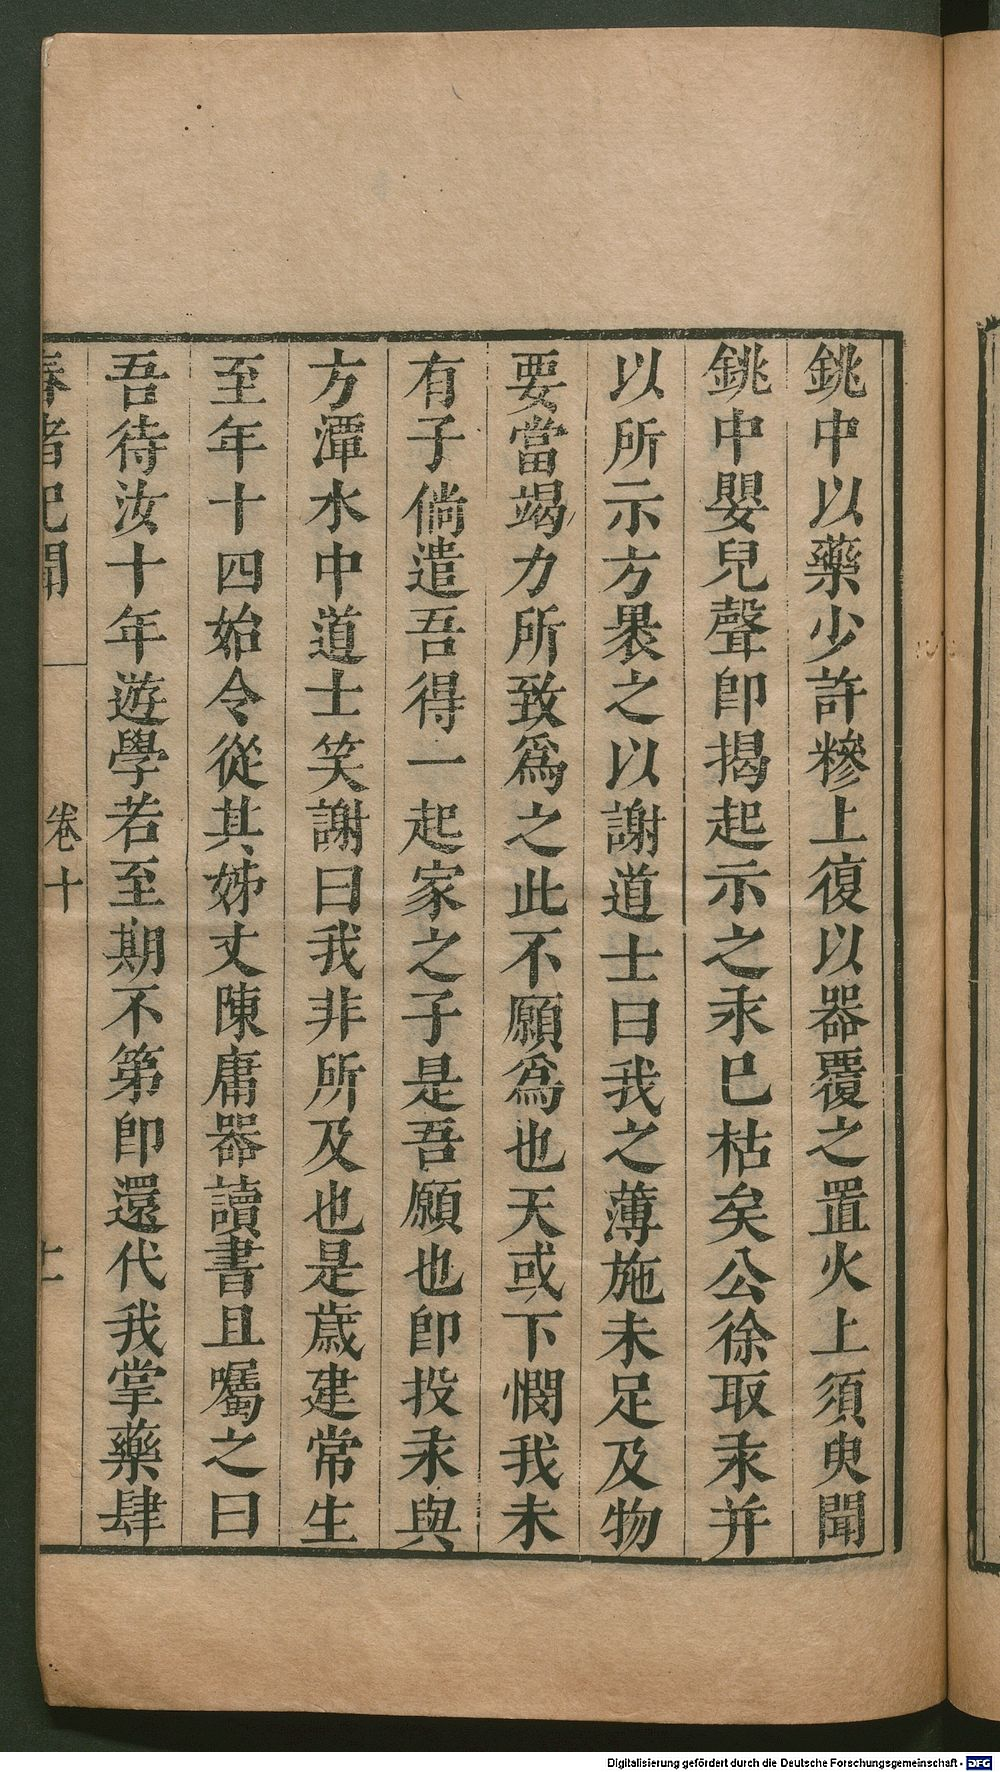 銚中以藥少許糝上復以器覆之置火上須臾聞
銚中嬰兒聲卽揭起示之汞巳枯矣公徐取汞并
以所示方褁之以謝道士曰我之薄施未足及物
要當竭力所致爲之此不願爲也天或下憫我未
有子倘遣吾得一起家之子是吾願也卽投汞與
方潭水中道士笑謝曰我非所及也是歳建常生
至年十四始令從其姊丈陳庸器讀書且囑之曰
吾待汝十年遊學若至期不第卽還代我掌藥肆
春渚紀聞
卷十
十一
Digitalisierung gefördert durch die Deutsche Forschungsgemeinschaft - DFG